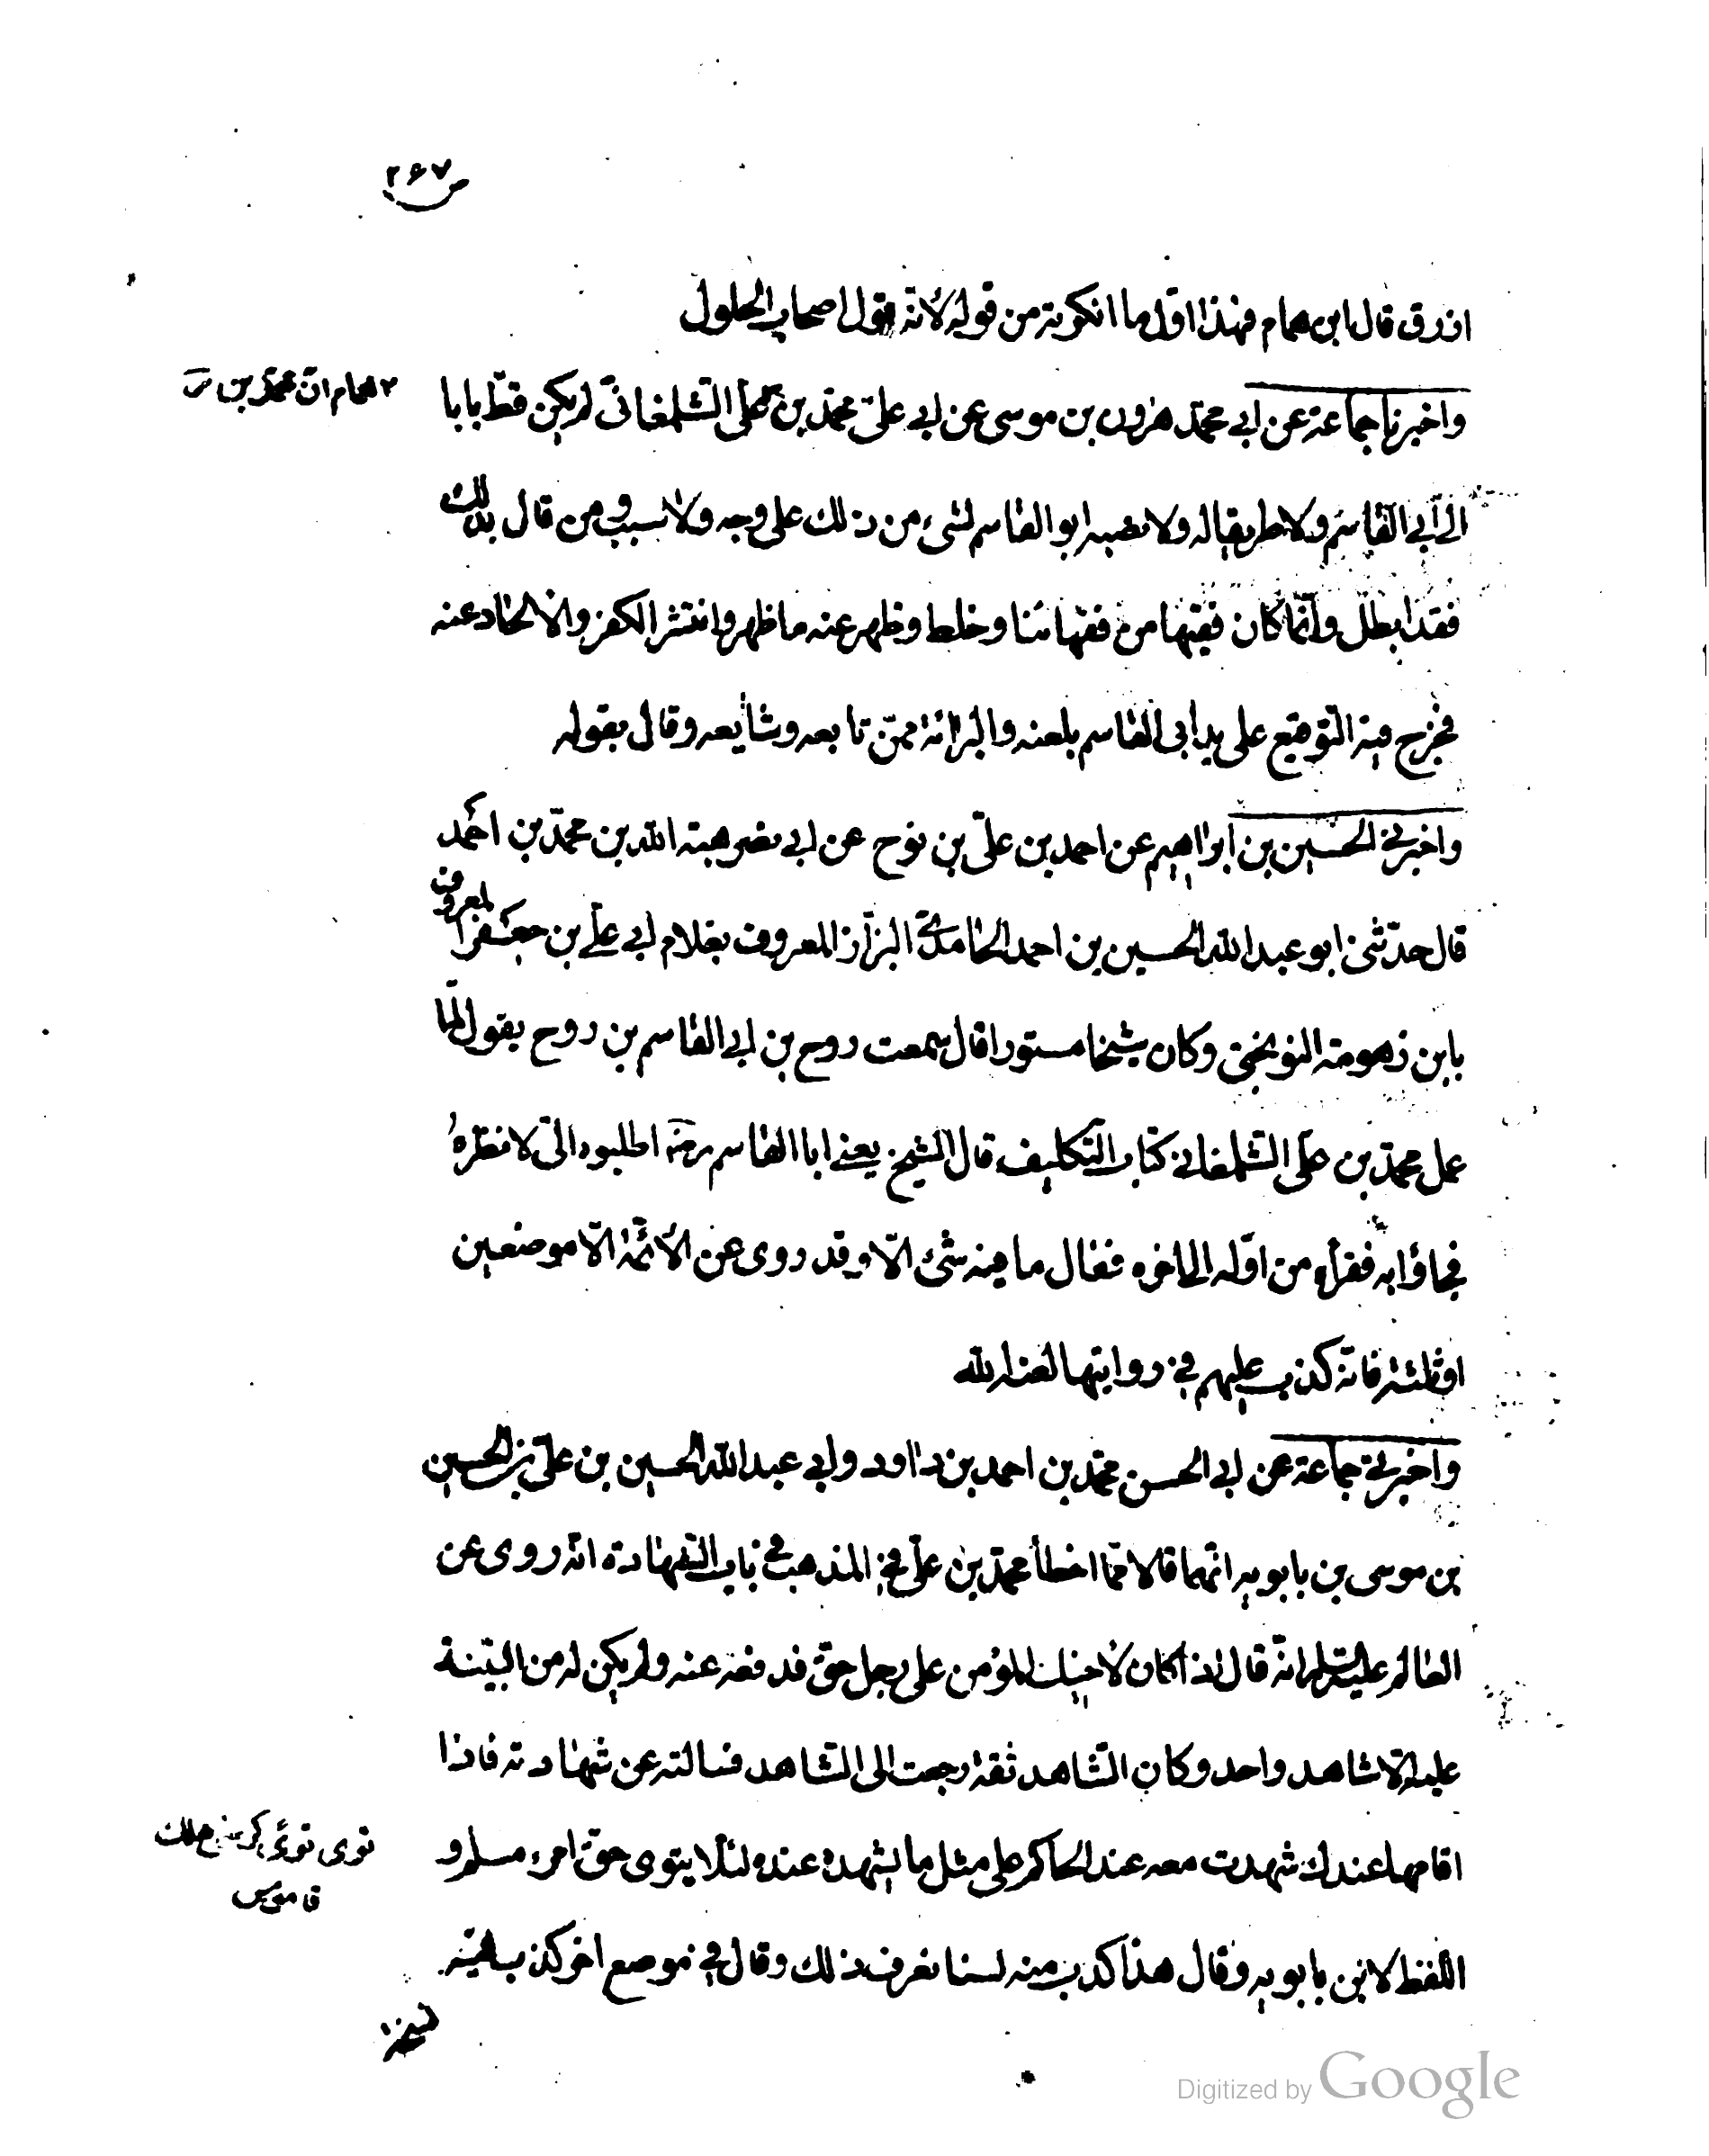 ص ٢٦٧
ازرق قال ابن همام فهذا اوّل ما انكرته من قوله لأنّه قول اصحاب الحلول
واخبرنا جماعة عن ابي محمّد هرون بن موسى عن ابي علىّ محمّد بن علىّ الشّلمغانىّ لم يكن قطّ بابا
همام انّ محمّد بن
الى أبي القاسم ولا طريقا له ولا نصبه ابو القاسم لشىء من ذلك على وجه ولا سبب ومن قال بذلك
فقد ابطل وانّما كان فقيها من فقهائنا وخلط وظهر عنه ما ظهر وانتشر الكفر والالحاد عنه
فخرج فيه التّوقيع على يد ابى القاسم بلعنه والبرائة ممّن تابعه وشايعه وقال بقوله
واخبرني الحسين بن ابراهيم عن احمد بن علىّ بن نوح عن ابي نصر هبة الله بن محمّد بن احمد
قال حدّثنى ابو عبد الله الحسين بن احمد الحامدىّ البزّاز المعروف بغلام ابي علىّ بن جعفر المعروف
بابن زهومة النوبختى وكان شيخا مستورا قال سمعت روح بن ابي القاسم بن روح يقول لمّا
عمل محمّد بن علىّ الشّلمغاني كتاب التّكليف قال الشيخ يعنى ابا القاسم رضه اطلبوه الىّ لانظره
فجاؤا به فقرأه من اوّله الى اخره فقال ما فيه شىء الّا وقد روى عن الأئمّة الّا موضعين
او ثلثة فانّه كذب عليهم في روايتها لعنه الله
واخبرني جماعة عن ابي الحسن محمّد بن احمد بن داود وابي عبد الله الحسين بن علىّ بن الحسين
بن موسى بن بابويه انّهما قالا ممّا اخطأ محمّد بن علىّ في المذهب في باب الشّهادة انّه روى عن
العالم عليه السّلم انّه قال اذا كان لأخيك المؤمن على رجل حقّ فدفعه عنه ولم يكن له من البيّنة
عليه الّا شاهد واحد وكان الشّاهد ثقة رجعت الى الشّاهد فسالته عن شهادته فاذا
اقامها عندك شهدت معه عند الحاكم على مثل ما يشهده عنده لئلّا يتوى حقّ امرء مسلم و
توى توىً كرضي هلك
قاموس
اللّفظ لابن بابويه وقال هذا كذب منه لسنا نعرف ذلك وقال في موضع اخر كذب فيه